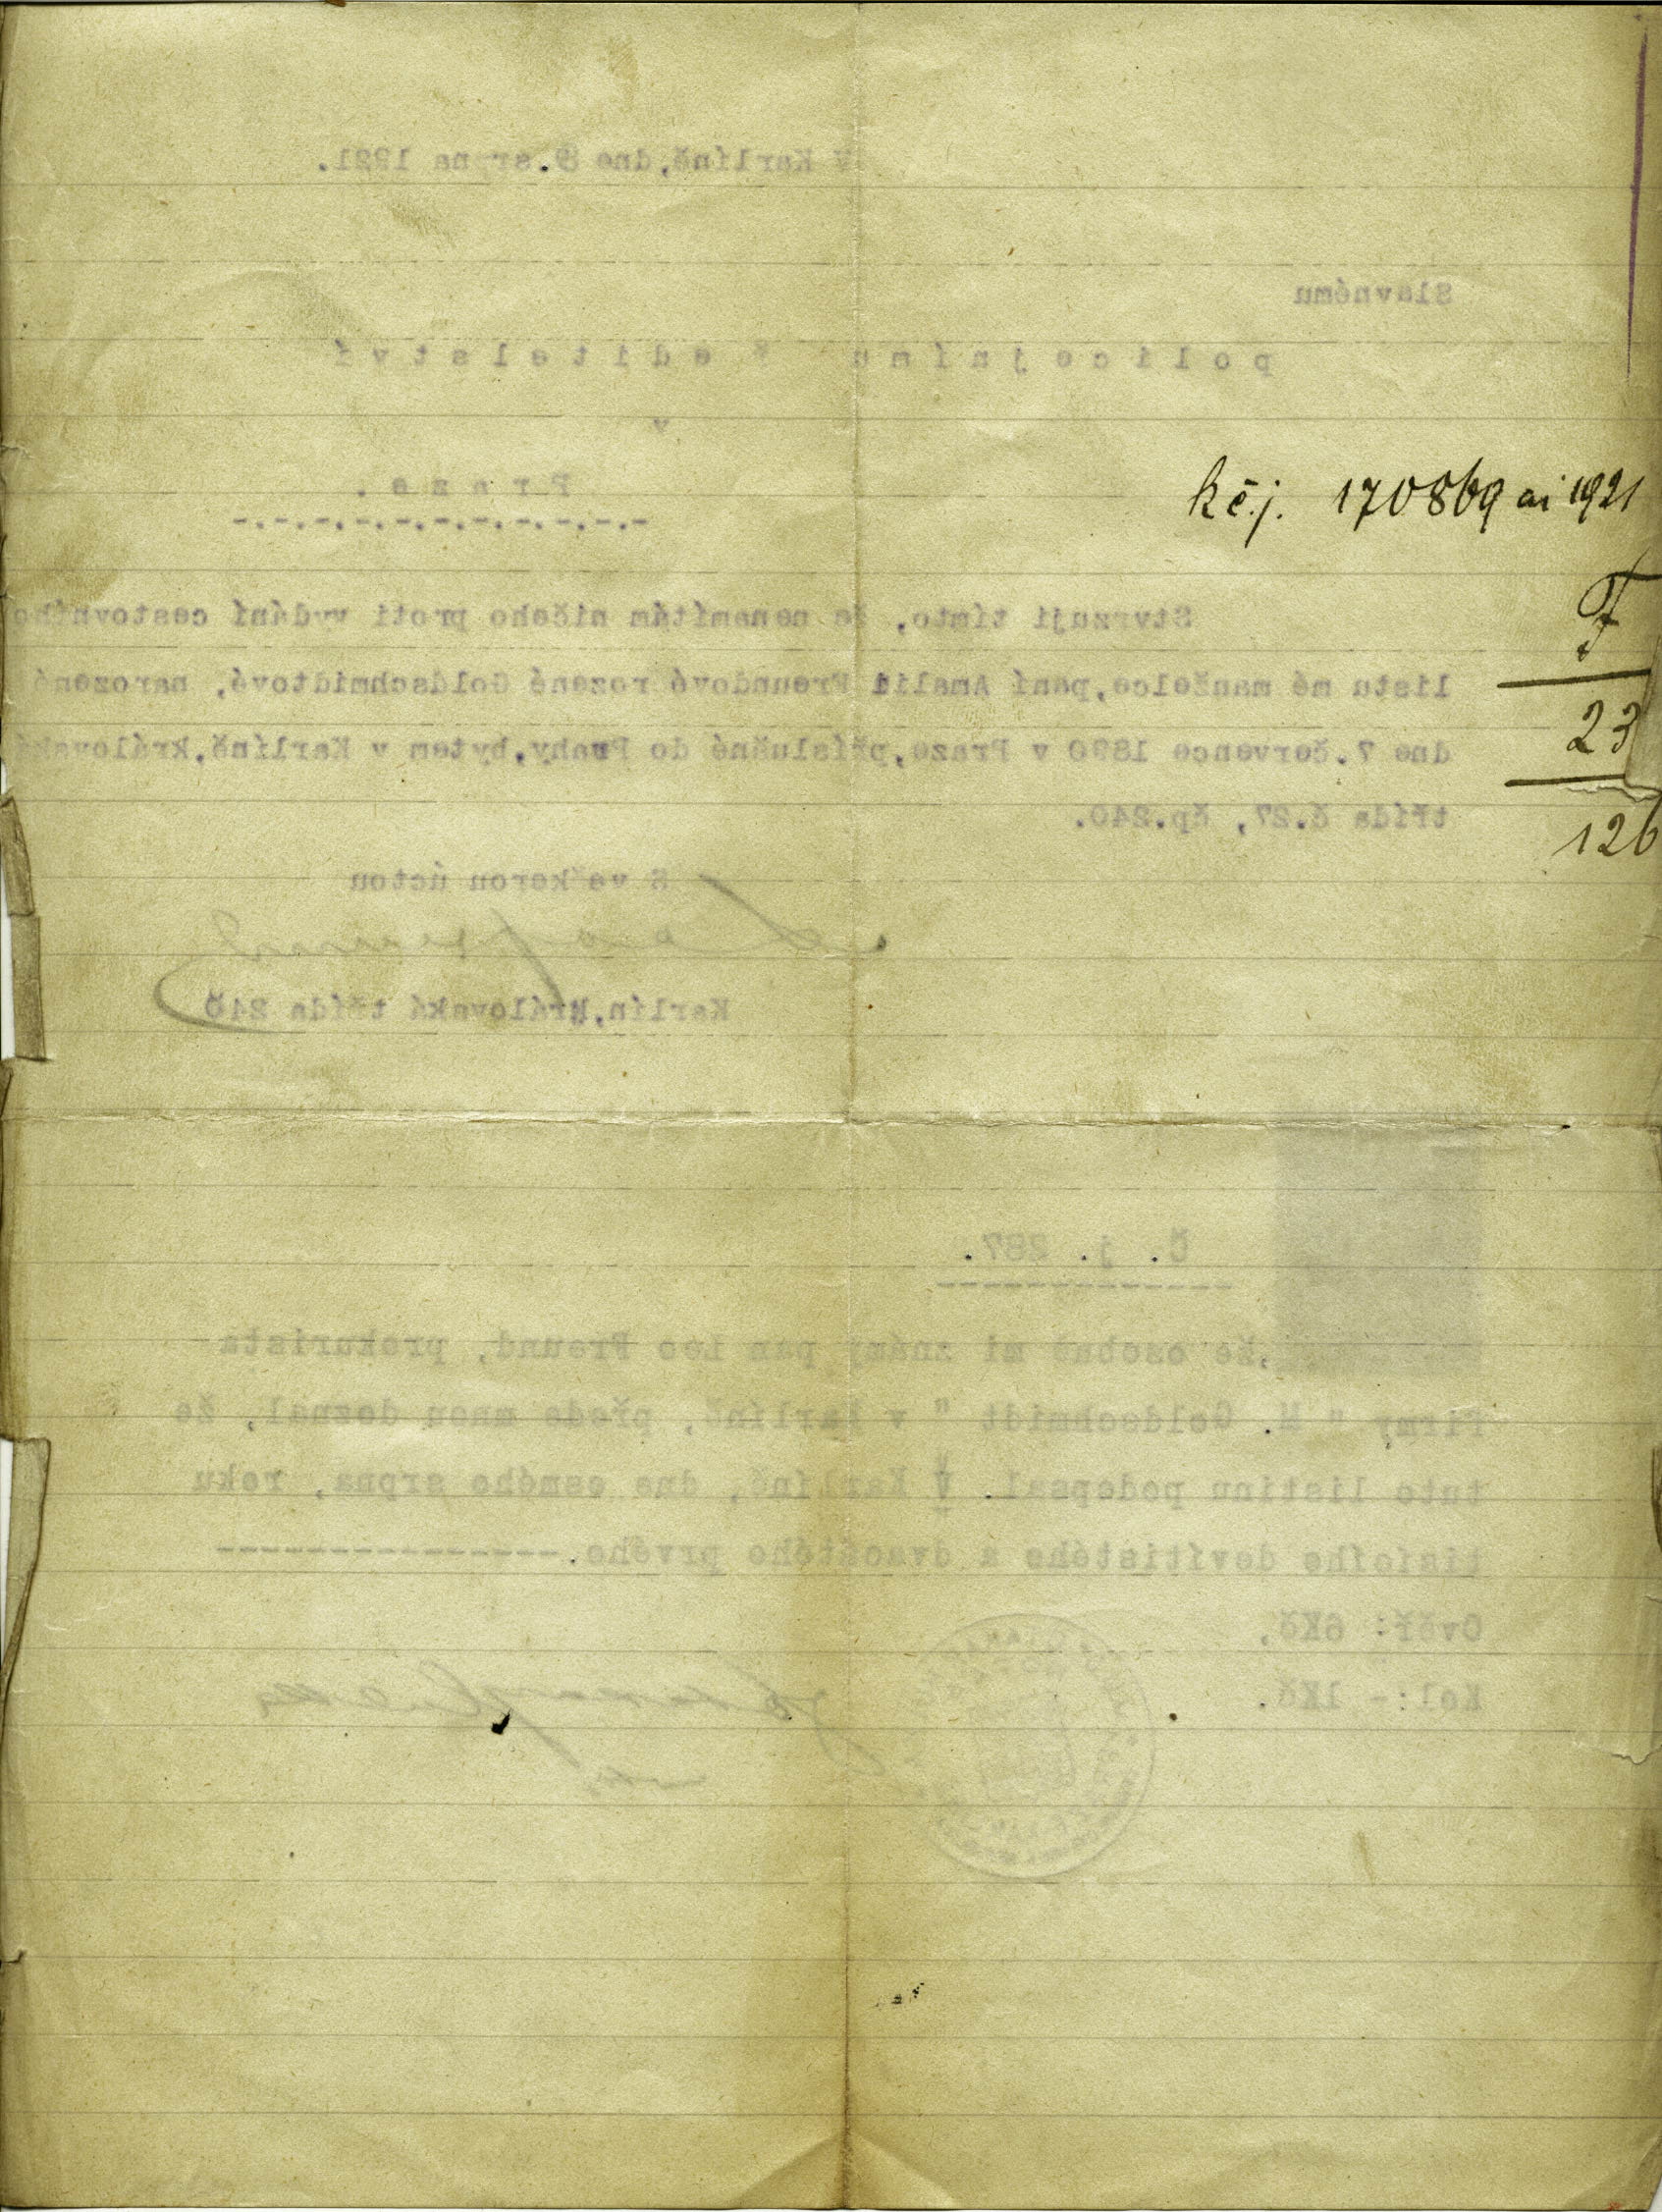 V Karlíně,dne 8.srpna 1921.
Slavnému
policejnímu ředitelství
v
Praze.
-.-.-.-.-.-.-.-.-.-.-
k č.j. 170869 ai 1921
F
23
126
Stvrzuji tímto, že nenamítám ničeho proti vydání cestovního
listu mé manželce,paní Amalii Freundové rozené Goldschmidtové, narozené
dne 7.července 1890 v Praze,příslušné do Prahy,bytem v Karlíně,královská
třída č.27, čp.240.
S veškerou úctou
Leo Freund
Karlín,Královská třída 240
Č. j. 287.
,že osobně mi známý pan Leo Freund, prokurista
firmy " M. Goldschmidt " v Karlíně, přede mnou doznal, že
tuto listinu podepsal. V Karlíně, dne osmého srpna, roku
tisícího devítistého a dvacátého prvého.---------------
Ověř: 6Kč,
Kol:- 1Kč.